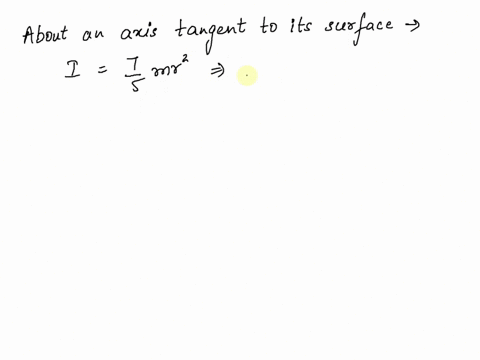 About an axis tangent to its surface →
I = 7/5 mr² ⇒